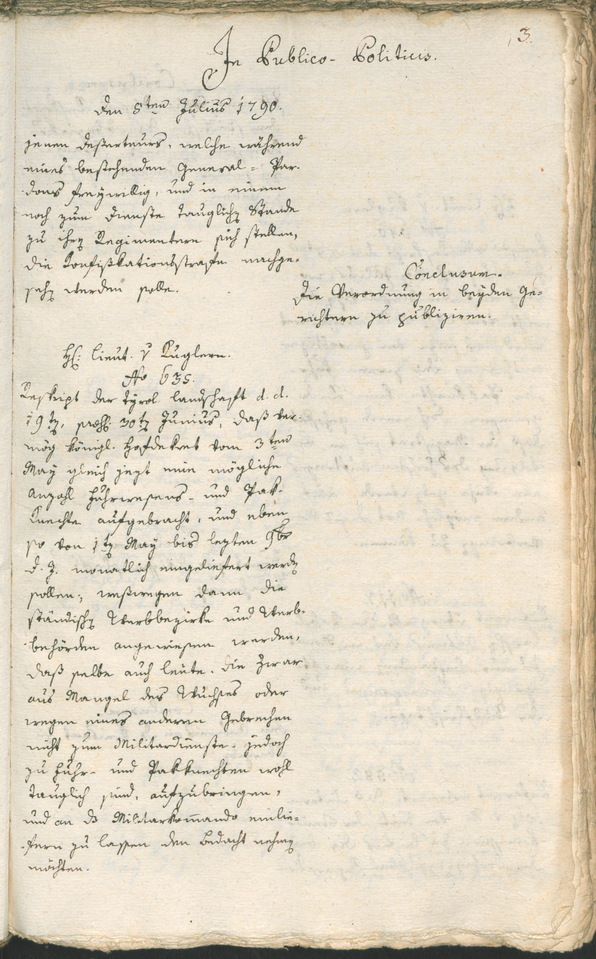 3.
In Publico-Politicis.
den 8ten Julius 1790.
jenen Deserteurs, welche während
eines bestehenden General-Par-
dons freywillig, und in einem
noch zum Dienste tauglichen Stande
zu ihren Regimentern sich stellen,
die Konfiskationsstrafe nachge-
sehen werden solle.
Conclusum.
Die Verordnung in beyden Ge-
richtern zu publiziren.
H: Lieut. v Kuglern.
No 635.
Reskript der tyrol Landschaft d. d.
19ten, 30ten Junius, daß ver-
mög königl. Hofdekret vom 3ten
May gleich jezt eine mögliche
Anzahl Fuhrwesens- und Pak-
knechte aufgebracht, und eben
so von 1ten May bis lezten 9ber
d. J. monatlich eingeliefert werden
sollen; weßwegen dann die
ständischen Werbbezirke und Werb-
behörden angewiesen werden,
daß selbe auch Leute, die zwar
aus Mangel des Wuchses oder
wegen eines anderen Gebrechen
nicht zum Militardienste, jedoch
zu Fuhr- und Pakknechten wohl
tauglich sind, aufzubringen,
und an das Militarkommando einlie-
fern zu lassen den Bedacht nehmen
möchten.